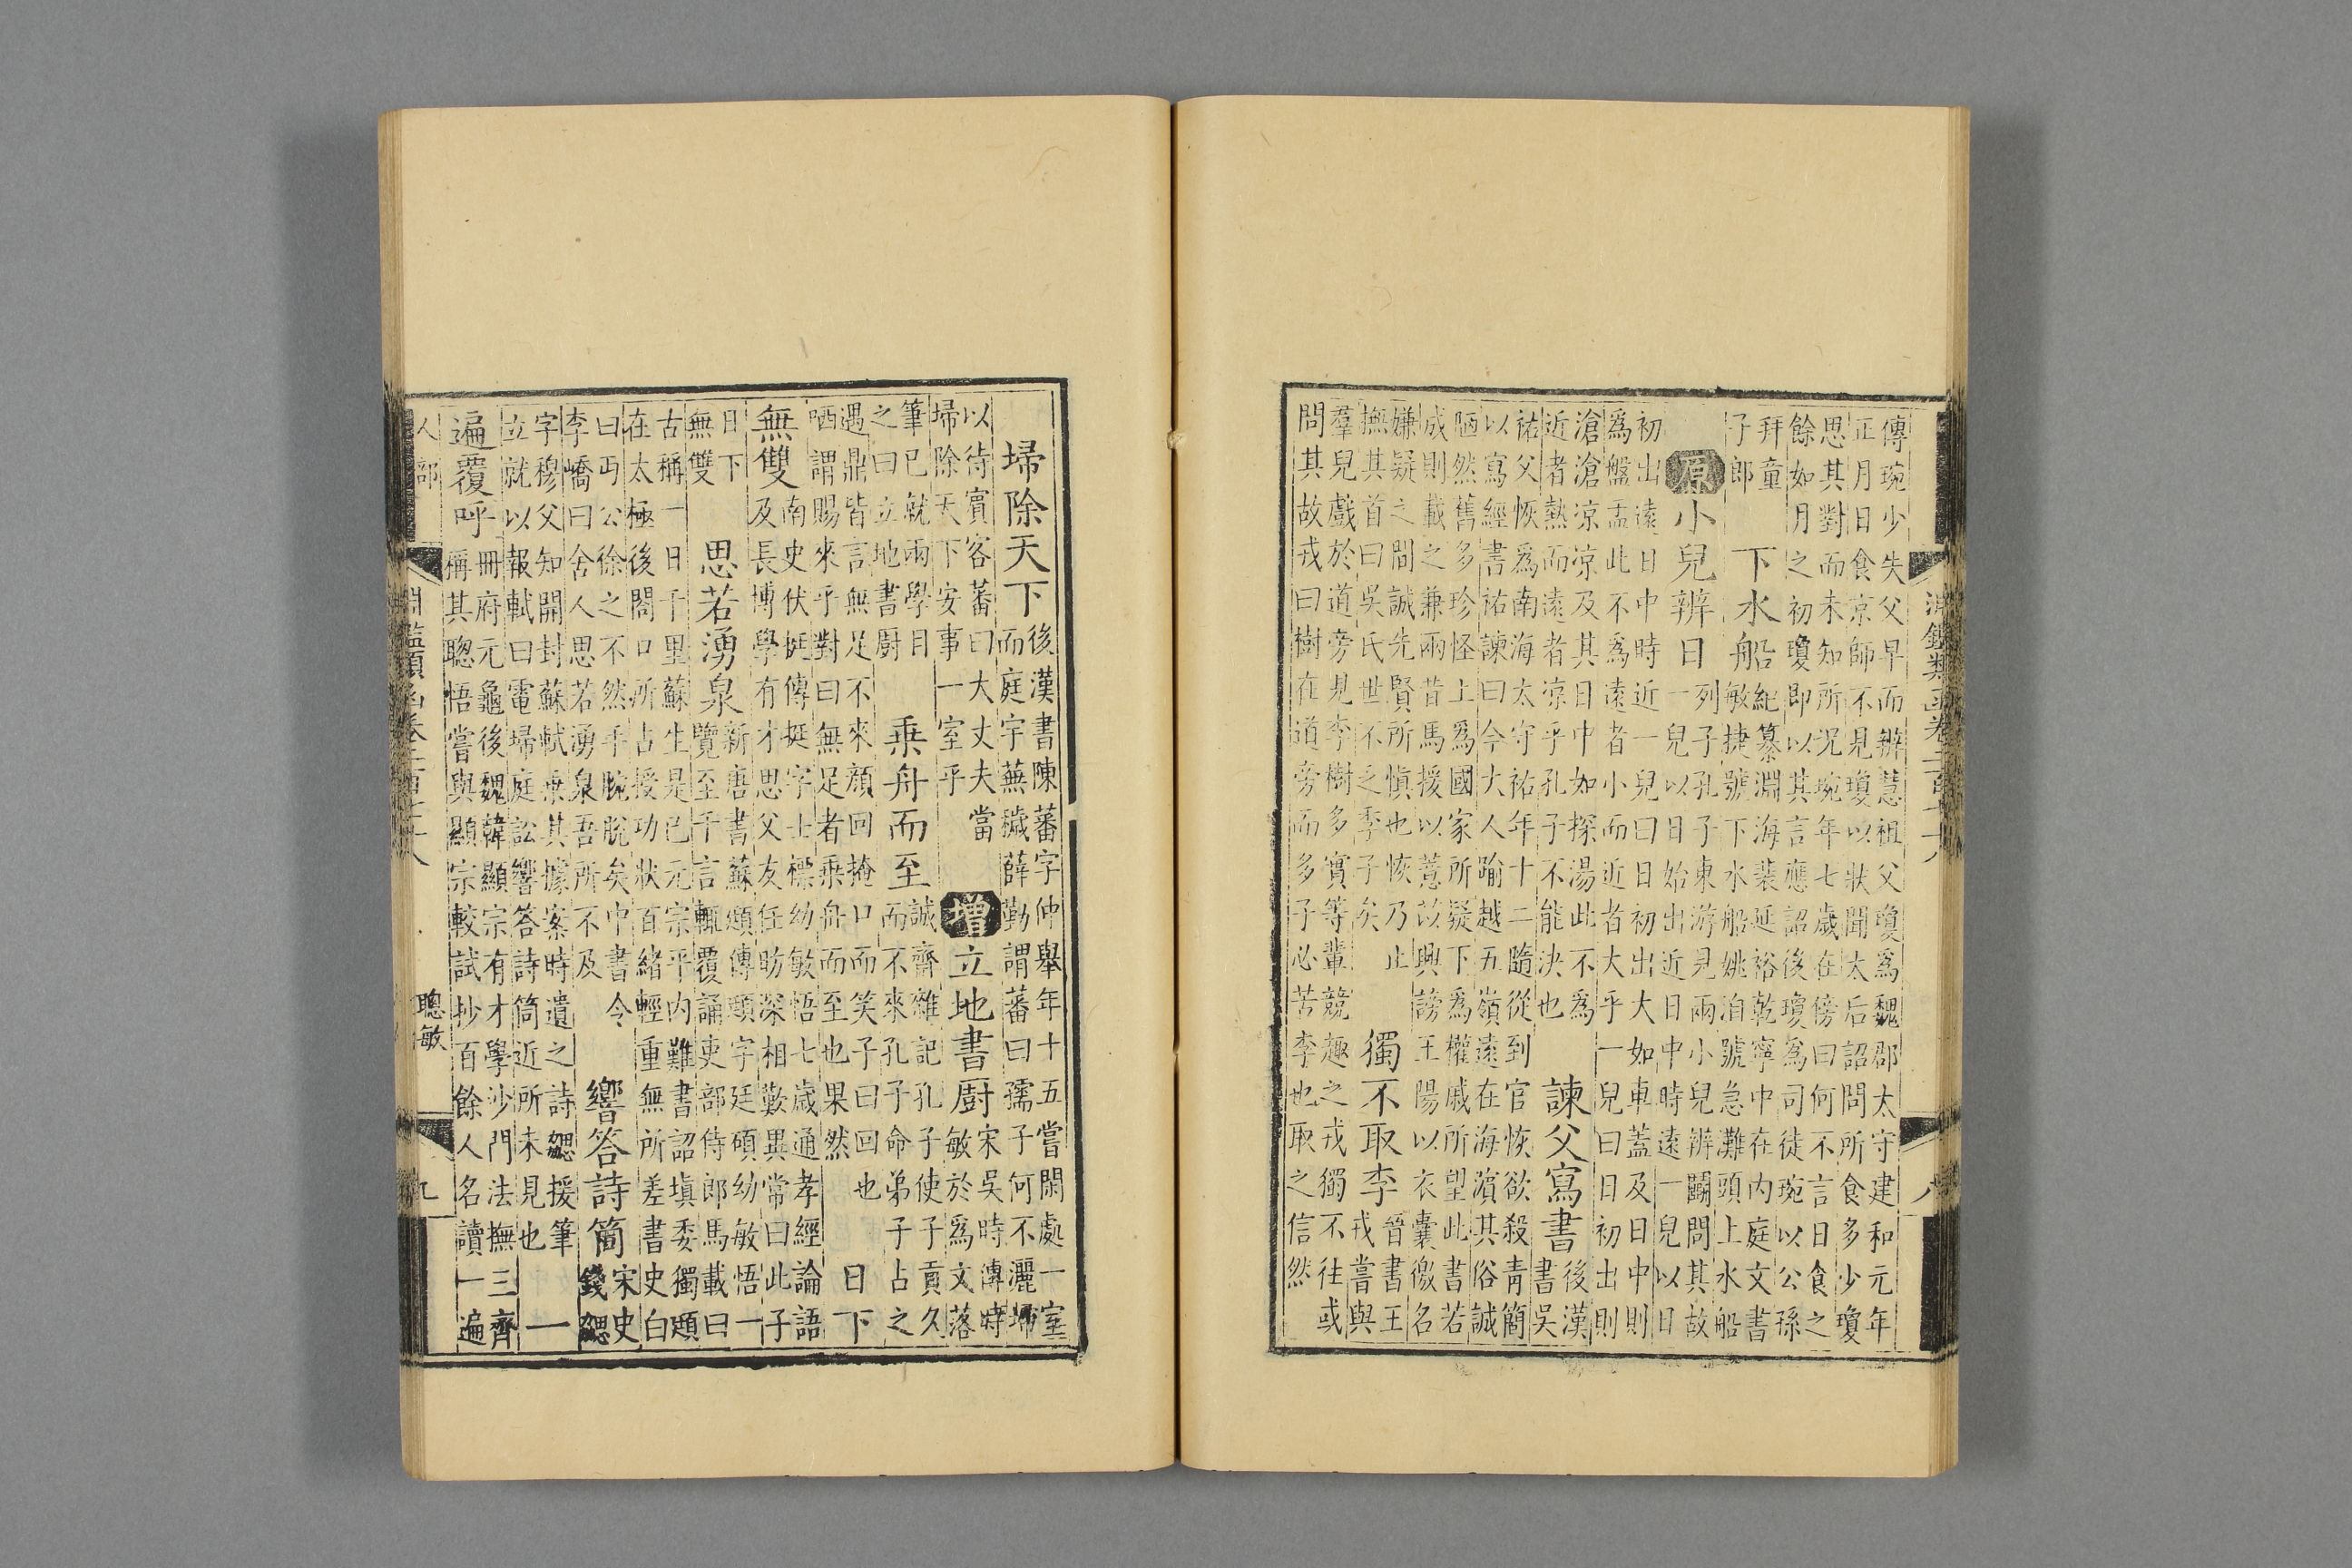 傳琬少失父早而辨慧祖父瓊爲魏郡太守建和元年
正月日食京師不見瓊以狀聞太后詔問所食多少瓊
思其對而未知所況琬年七歲在傍曰何不言日食之
餘如月之初瓊即以其言應詔後瓊爲司徒琬以公孫
拜童
子郎
下水船
紀纂淵海裴延裕乾寧中在內庭文書
敏捷號下水船姚洎號急灘頭上水船
原
小兒辨日
列子孔子東游見兩小兒辨鬭問其故
一兒以日始出近日中時遠一兒以日
初出遠日中時近一兒曰日初出大如車蓋及日中則
爲盤盂此不爲遠者小而近者大乎一兒曰日初出則
滄滄凉凉及其日中如探湯此不爲
近者熱而遠者凉乎孔子不能決也
諫父寫書
後漢
書吳
祐父恢爲南海太守祐年十二隨從到官恢欲殺青簡
以寫經書祐諫曰今大人踰越五嶺遠在海濱其俗誠
陋然舊多珍怪上爲國家所疑下爲權戚所望此書若
成則載之兼兩昔馬援以薏苡興謗王陽以衣囊徼名
嫌疑之間誠先賢所愼也恢乃止
撫其首曰吳氏世不乏季子矣
獨不取李
晉書王
戎嘗與
羣兒戲於道旁見李樹多實等輩競趣之戎獨不往或
問其故戎曰樹在道旁而多子必苦李也取之信然
埽除天下
後漢書陳蕃字仲舉年十五嘗閑處一室
而庭宇蕪穢薛勤謂蕃曰孺子何不灑埽
以待賓客蕃曰大丈夫當
埽除天下安事一室乎
增
立地書廚
宋吳時傳時
敏於爲文落
筆已就兩學目
之曰立地書廚
乘舟而至
誠齋雜記孔子使子貢久
而不來孔子命弟子占之
遇鼎皆言無足不來顏回掩口而笑子曰回也
哂謂賜來乎對曰無足者乘舟而至也果然
日下
無雙
南史伏挺傳挺字士標幼敏悟七歲通孝經論語
及長博學有才思父友任昉深相歎異常曰此子
日下
無雙
思若湧泉
新唐書蘇頲傳頲字廷碩幼敏悟一
覽至千言輒覆誦吏部侍郎馬載曰
古稱一日千里蘇生是已元宗平內難書詔塡委獨頲
在太極後閤口所占授功狀百緒輕重無所差書史白
曰丐公徐之不然手腕脫矣中書令
李嶠曰舍人思若湧泉吾所不及
響答詩筒
宋史
錢勰
字穆父知開封蘇軾乘其據案時遺之詩勰援筆
立就以報軾曰電埽庭訟響答詩筒近所未見也
一
遍覆呼
冊府元龜後魏韓顯宗有才學沙門法撫三齊
稱其聰悟嘗與顯宗較試抄百餘人名讀一遍
人部
聰敏
九